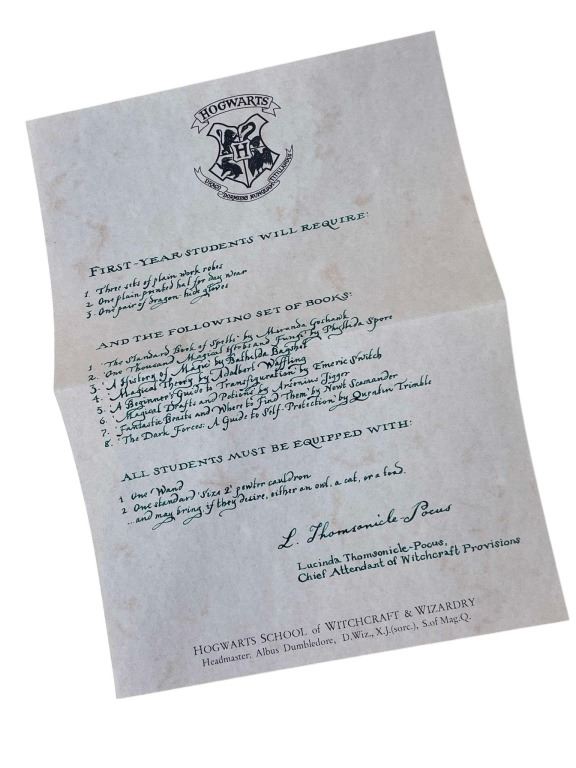 HOGWARTS
DRACO DORMIENS NUNQUAM TITILLANDUS
H
FIRST-YEAR STUDENTS WILL REQUIRE:
1. Three sets of plain work robes
2. One plain pointed hat for day wear
3. One pair of dragon-hide gloves
AND THE FOLLOWING SET OF BOOKS:
1. 'The Standard Book of Spells' by Miranda Goshawk
2. 'One Thousand Magical Herbs and Fungi' by Phyllida Spore
3. 'A History of Magic' by Bathilda Bagshot
4. 'Magical Theory' by Adalbert Waffling
5. 'A Beginner's Guide to Transfiguration' by Emeric Switch
6. 'Magical Drafts and Potions' by Arsenius Jigger
7. 'Fantastic Beasts and Where to Find Them' by Newt Scamander
8. 'The Dark Forces: A Guide to Self-Protection' by Quentin Trimble
ALL STUDENTS MUST BE EQUIPPED WITH:
1 One Wand
2 One standard 'Size 2' pewter cauldron
...and may bring, if they desire, either an owl, a cat, or a toad.
L. Thomsonicle-Pocus
Lucinda Thomsonicle-Pocus,
Chief Attendant of Witchcraft Provisions
HOGWARTS SCHOOL of WITCHCRAFT & WIZARDRY
Headmaster: Albus Dumbledore, D.Wiz., X.J.(sorc.), S.of Mag.Q.